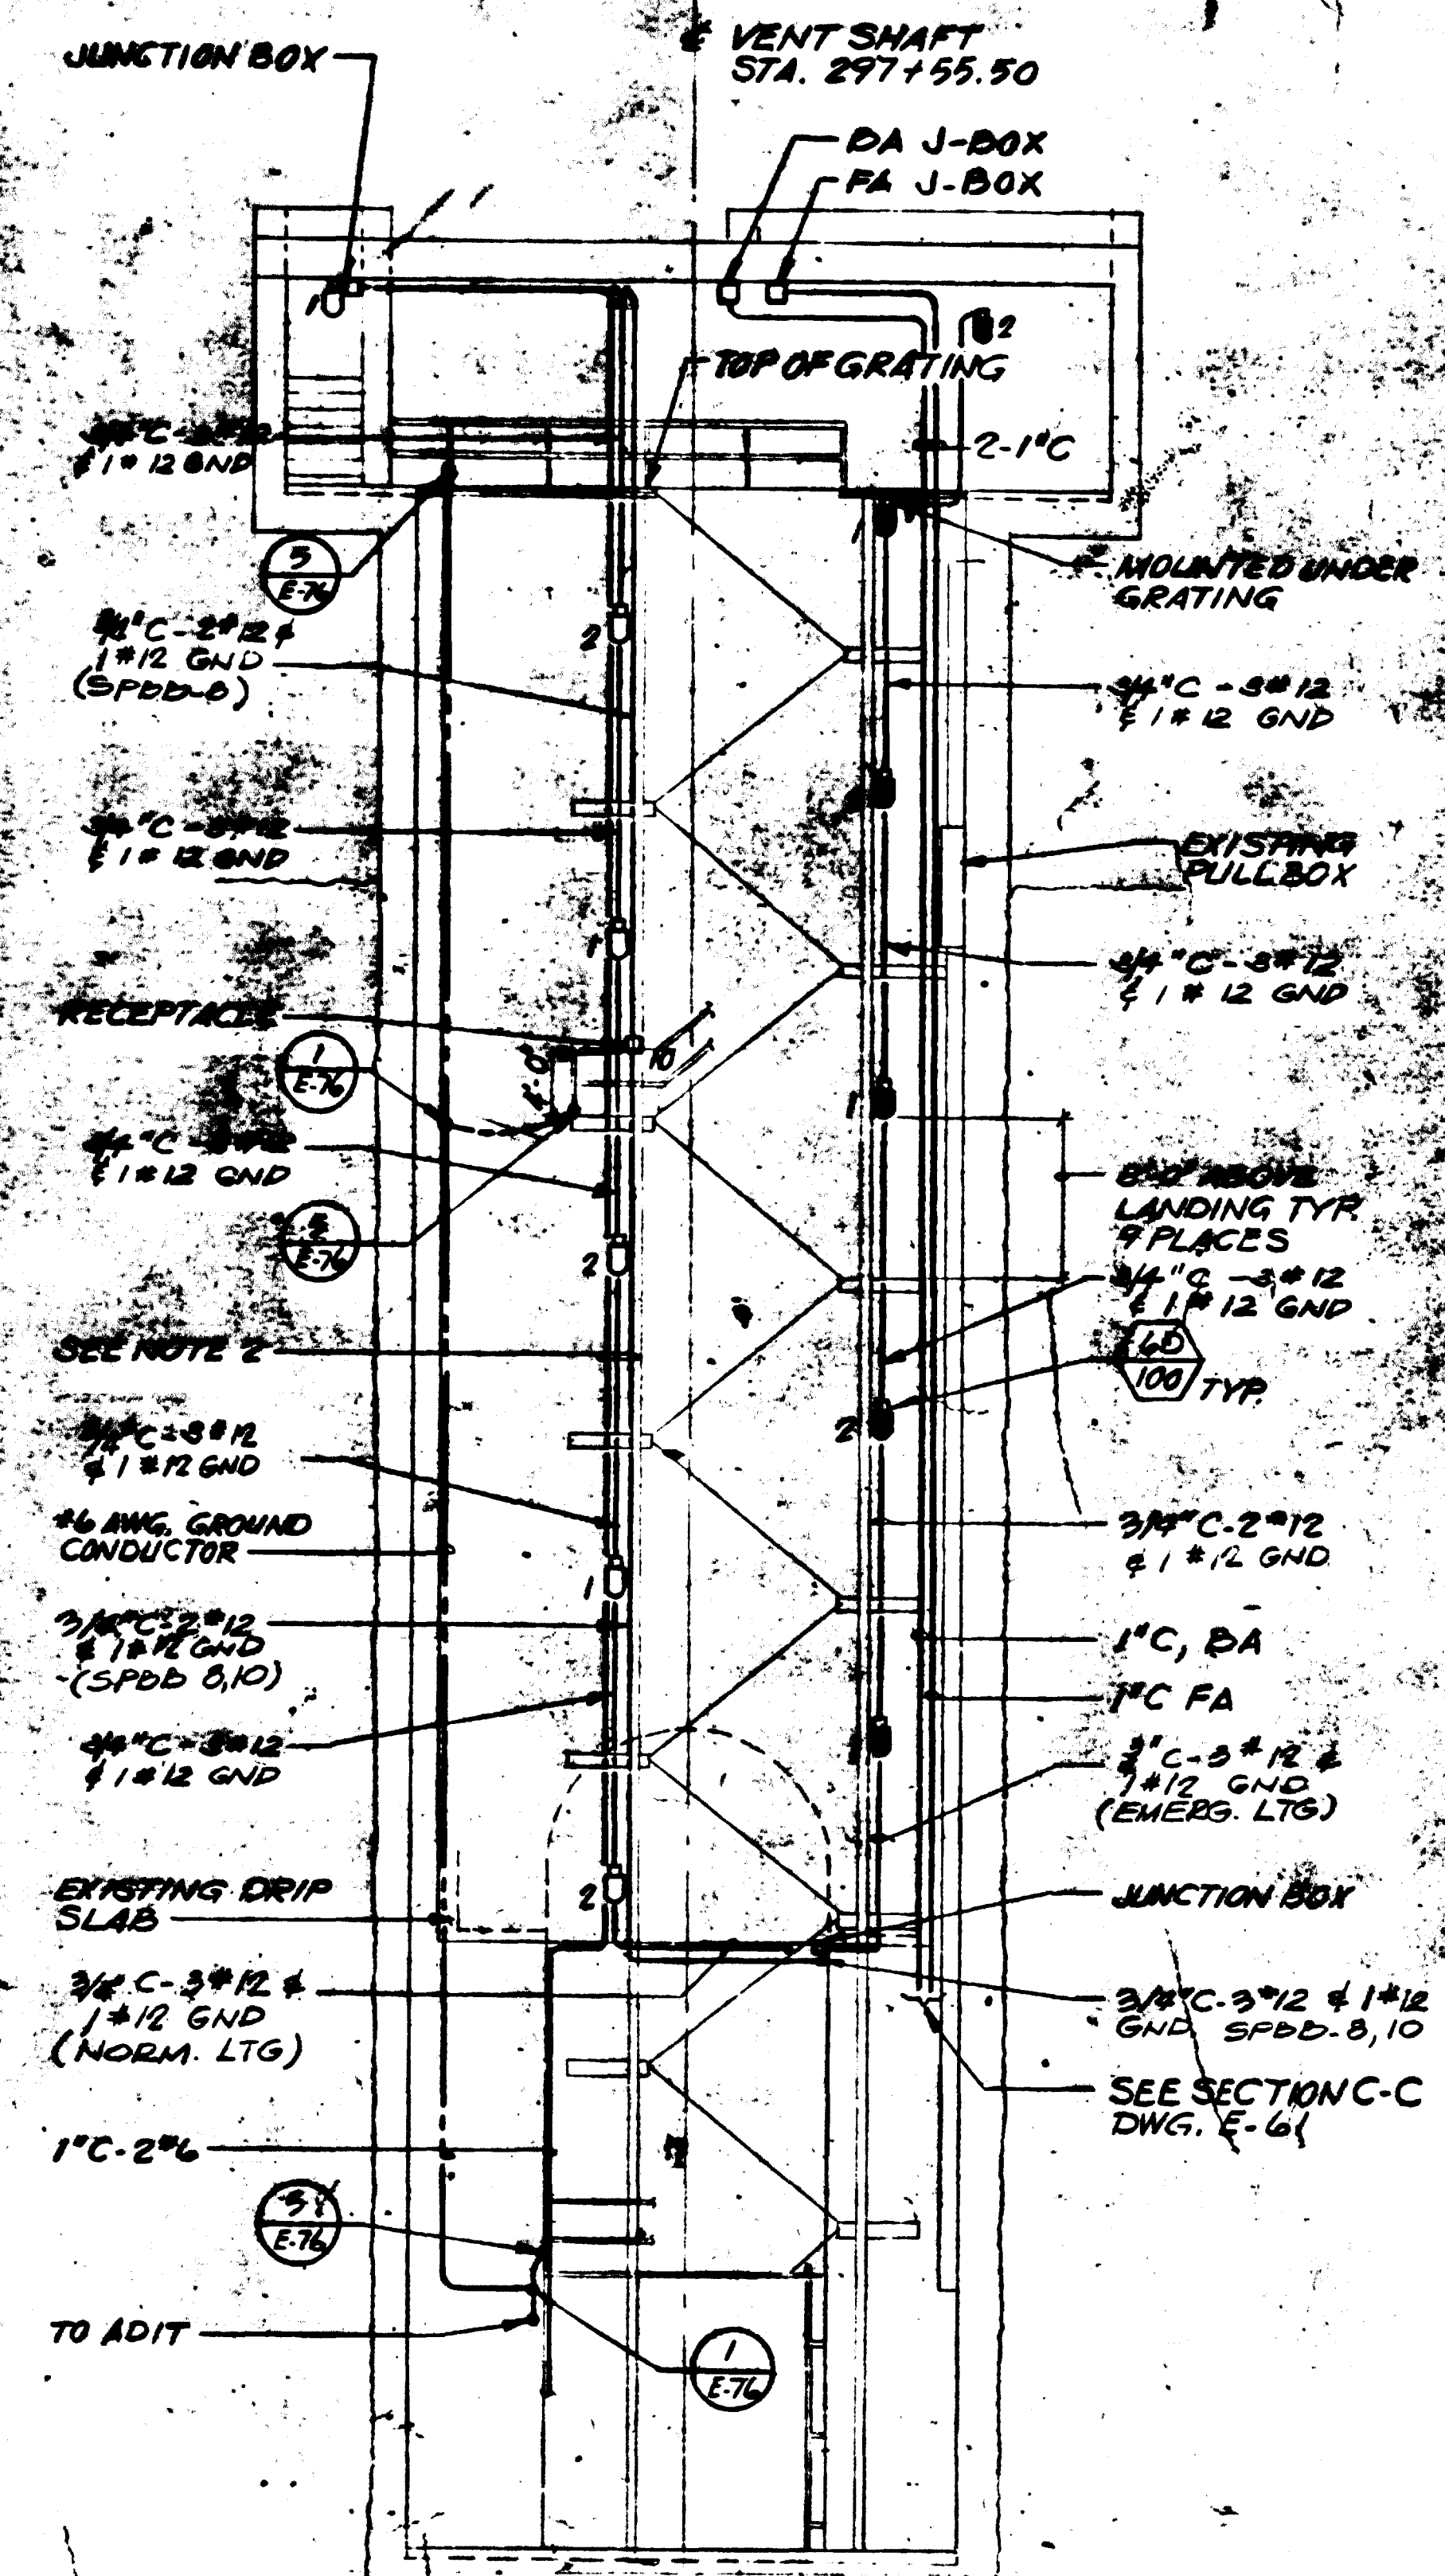 JUNCTION BOX
℄ VENT SHAFT
STA. 297+55.50
BA J-BOX
FA J-BOX
1
2
TOP OF GRATING
& 1 # 12 GND
2-1"C
1
5
E-76
MOUNTED UNDER
GRATING
3/4"C-2#12 &
1 #12 GND
(SPBB-8)
2
3/4"C - 3#12
& 1 # 12 GND
3/4"C-3#12
& 1 # 12 GND
EXISTING
PULLBOX
1
3/4"C-3#12
& 1 # 12 GND
RECEPTACLE
1
E-76
4'-0"
10
1
3/4"C-3#12
& 1 # 12 GND
8'-0" ABOVE
LANDING TYP.
9 PLACES
E-76
2
3/4"C - 3#12
& 1 # 12 GND
SEE NOTE 2
6D
100
TYP.
2
3/4"C-3#12
& 1 #12 GND
#6 AWG. GROUND
CONDUCTOR
3/4"C-2#12
& 1 #12 GND
1
3/4"C-2#12
& 1#12 GND
(SPBB 8,10)
1"C, BA
1"C FA
3/4"C-3#12
& 1#12 GND
3/4"C-3#12 &
1#12 GND
(EMERG. LTG)
EXISTING DRIP
SLAB
2
JUNCTION BOX
3/4"C-3#12 &
1 #12 GND
(NORM. LTG)
3/4"C-3#12 & 1#12
GND SPBB-8,10
SEE SECTION C-C
DWG. E-61
1"C-2#6
5
E-76
TO ADIT
1
E-76